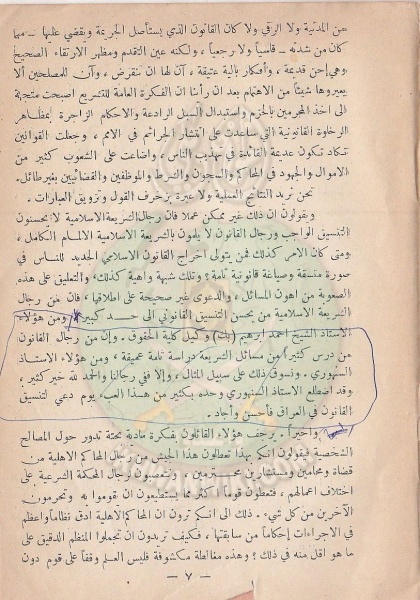 من المدنية ولا الرقي ولا كان القانون الذي يستأصل الجريمة ويقضي عليها – مهما
كان من شدته – قاسياً ولا رجعياً ، ولكنه عين التقدم ومظهر الارتقاء الصحيح
وهي إحن قديمة ، وأفكار بالية عتيقة ، آن لها ان تنقرض ، وآن للمصلحين ألا
يعيروها شيئاً من الاهتمام بعد ان رأينا ان الفكرة العامة للتشريع اصبحت متجهة
الى اخذ المجرمين بالحزم واستبدال السبل الرادعة والاحكام الزاجرة بمظاهر
الرخاوة القانونية التي ساعدت على انتشار الجرائم في الامم ، وجعلت القوانين
تكاد تكون عديمة الفائدة في تهذيب الناس ، واضاعت على الشعوب كثير من
الاموال والجهود في المحاكم والسجون والشرط والموظفين والقضائيين بغير طائل .
نحن نريد النتائج العملية ولا عبرة بزخرف القول وتزويق العبارات .
ويقولون ان ذلك غير ممكن عملا فان رجال الشريعة الاسلامية لا يحسنون
التنسيق الواجب ورجال القانون لا يلمون بالشريعة الاسلامية الالمام الكامل ،
ومتى كان الامر كذلك فمن يتولى اخراج القانون الاسلامي الجديد للناس في
صورة منسقة وصياغة قانونية تامة ؟ وتلك شبهة واهية كذلك ، والتعليق على هذه
الصعوبة من اهون المسائل ، والدعوى غير صحيحة على اطلاقها ، فان من رجال
الشريعة الاسلامية من يحسن التنسيق القانوني الى حد كبير ، ومن هؤلاء
الاستاذ الشيخ احمد ابرهيم (بك) وكيل كلية الحقوق . وإن من رجال القانون
من درس كثيراً من مسائل الشريعة دراسة تامة عميقة ، ومن هؤلاء الاستاذ
السنهوري . ونسوق ذلك على سبيل المثال ، وإلا ففي رجالنا والحمد لله خير كثير ،
وقد اضطلع الاستاذ السنهوري وحده بكثير من هذا العبء ، يوم دعي لتنسيق
القانون في العراق فأحسن وأجاد .
وأخيراً . يرجف هؤلاء القائلون بفكرة مادية بحتة تدور حول المصالح
الشخصية فيقولون انكم بهذا تعطلون هذا الجيش من رجال المحاكم الاهلية من
قضاة ومحامين ومستشارين محترمين ، وتنصبون رجال المحكمة الشرعية على
اختلاف اعمالهم ، فتعطلون قوما اكثر مما يستطيعون ان يقوموا به وتحرمون
الآخرين من كل شيء . ذلك الى انكم ترون ان المحاكم الاهلية ادق نظاما واعظم
في الاجراءات إحكاماً من سابقتها ، فكيف تريدون ان تحملوا المنظم الدقيق على
ما هو اقل منه في ذلك ؟ وهذه مغالطة مكشوفة فليس العلم وقفاً على قوم دون
– ٧ –